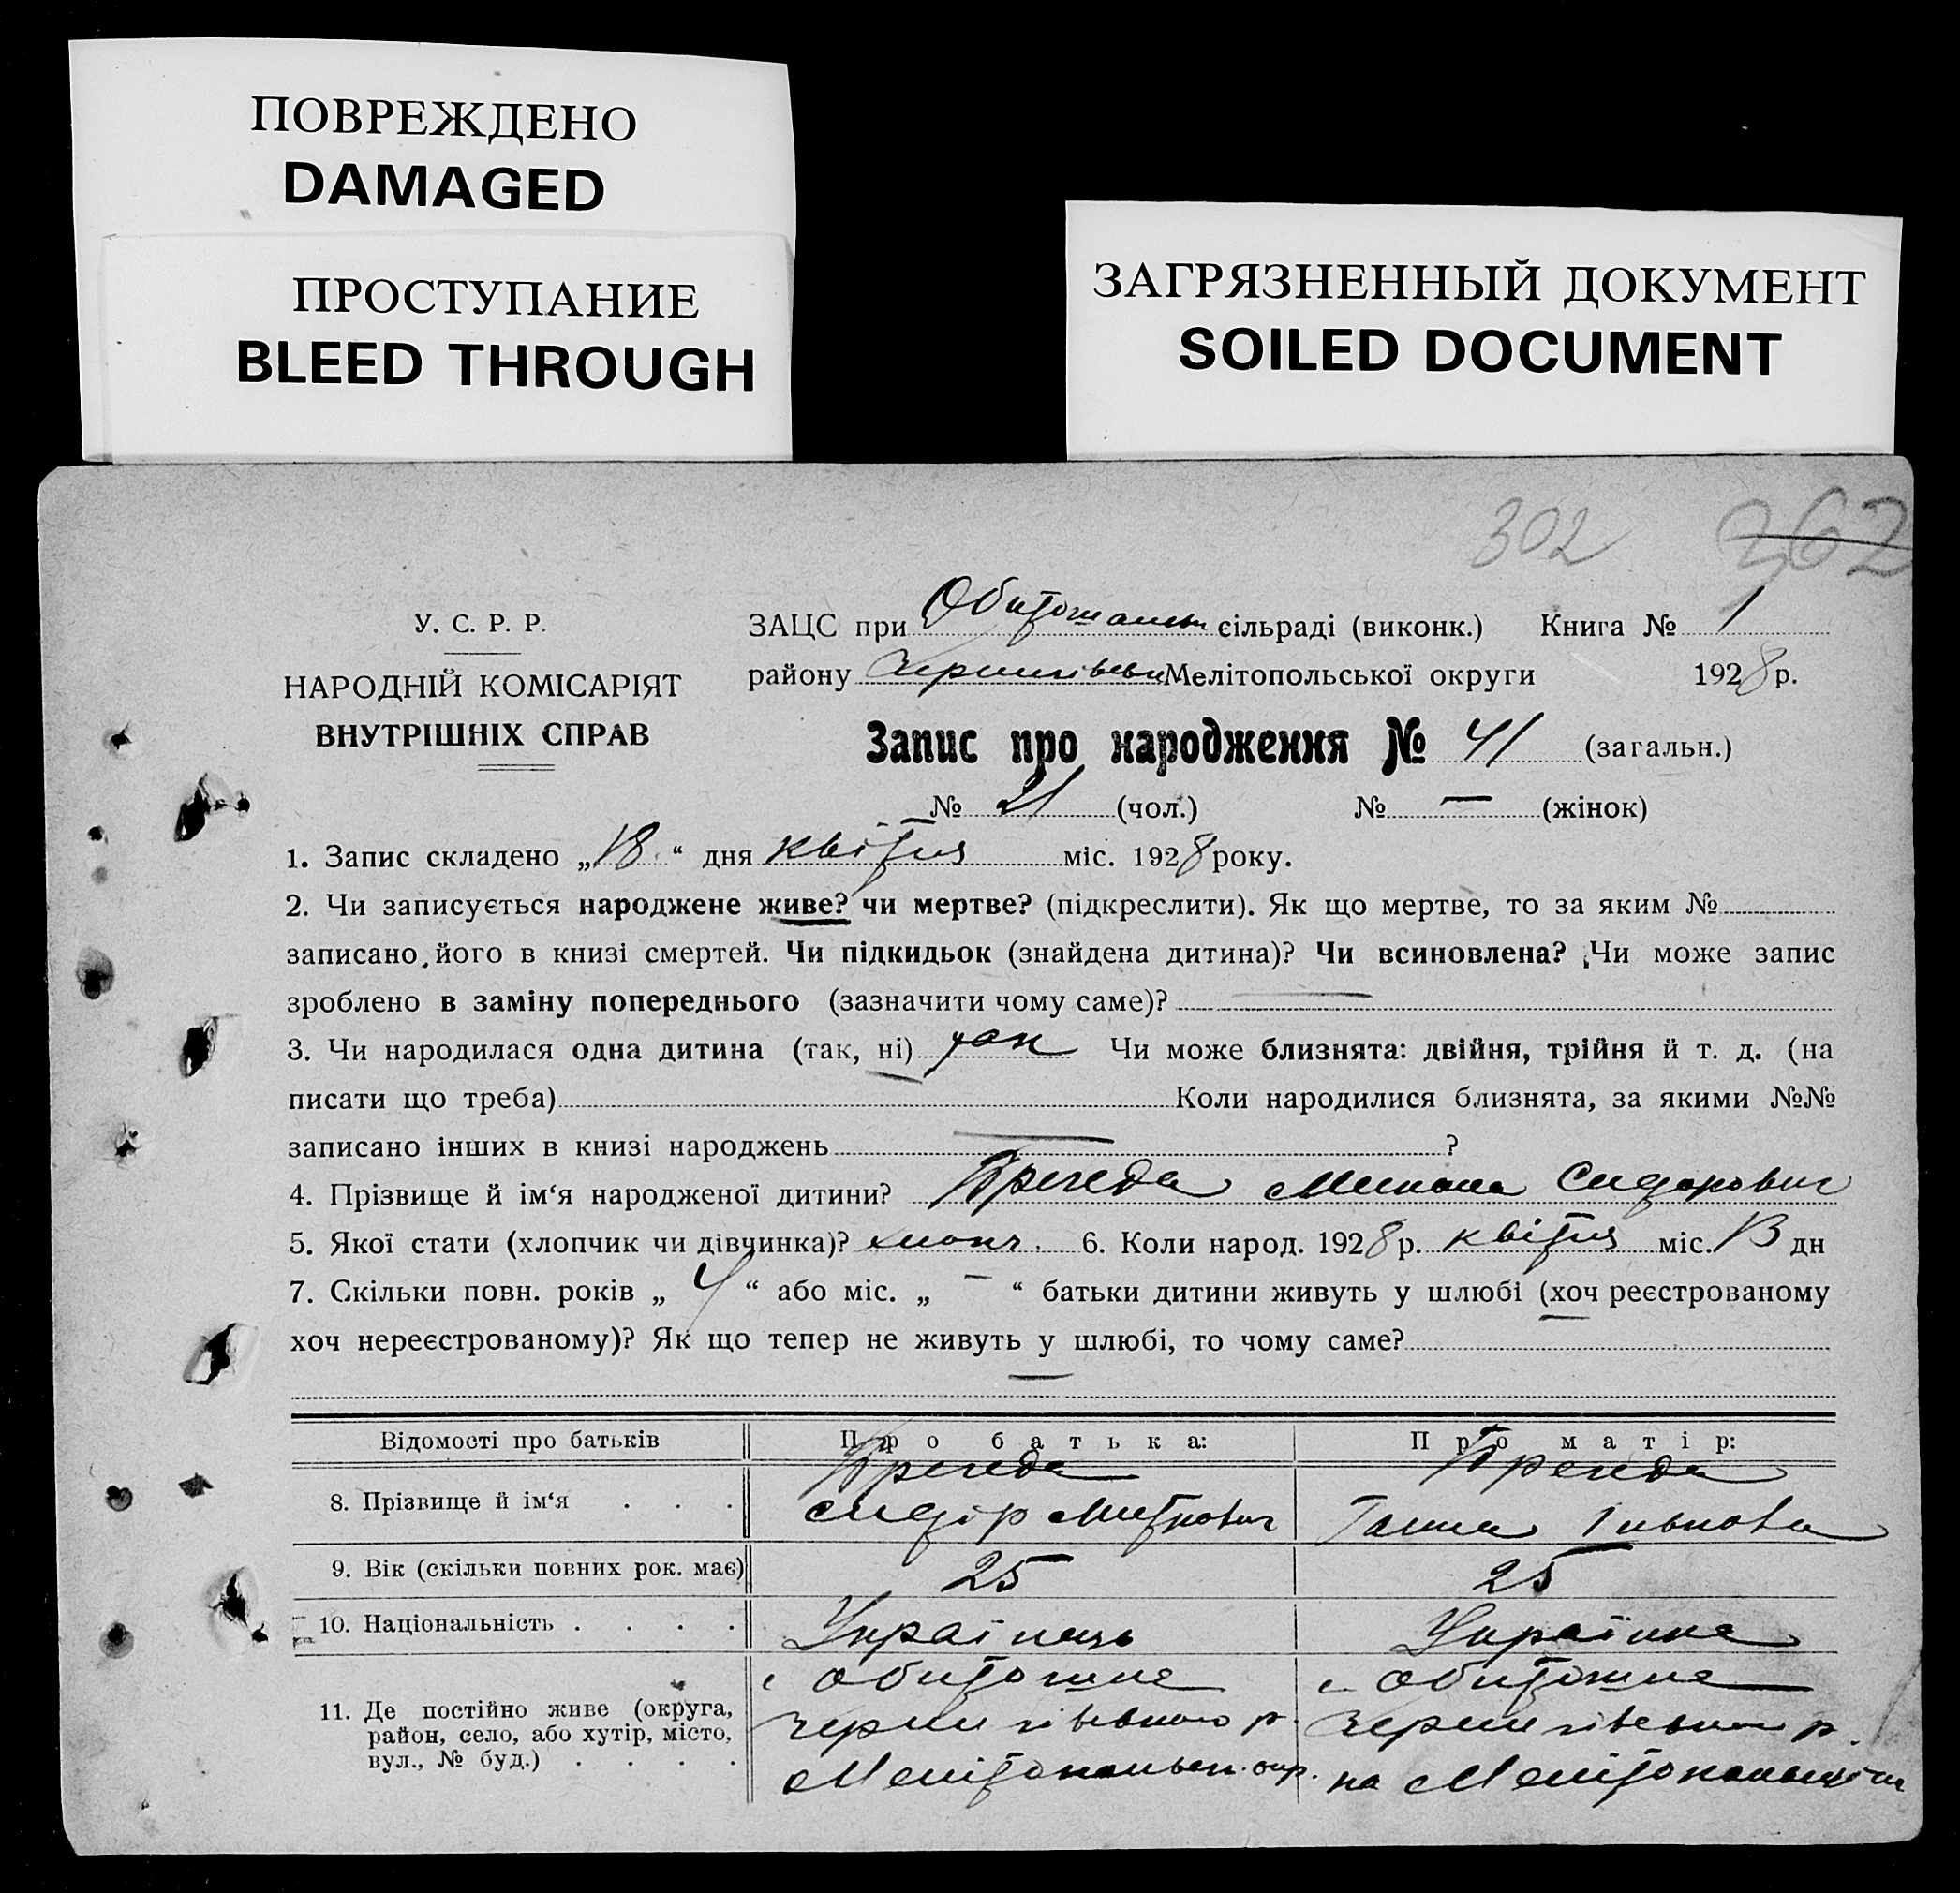 ПОВРЕЖДЕНО
DAMAGED
ПРОСТУПАНИЕ
BLEED THROUGH
ЗАГРЯЗНЕННЫЙ ДОКУМЕНТ
SOILED DOCUMENT
302 262
У. С. Р. Р.
НАРОДНІЙ КОМІСАРІЯТ
ВНУТРІШНІХ СПРАВ
ЗАЦС при сільраді (виконк.) Книга № 1
району Мелітопольської округи 1928 р.
Запис про народження № 41 (загальн.)
№ 21 (чол.) № — (жінок)
1. Запис складено „18“ дня квітня міс. 1928 року.
2. Чи записується народжене живе? чи мертве? (підкреслити). Як що мертве, то за яким №
записано його в книзі смертей. Чи підкидьок (знайдена дитина)? Чи всиновлена? Чи може запис
зроблено в заміну попереднього (зазначити чому саме)? —
3. Чи народилася одна дитина (так, ні) так Чи може близнята: двійня, трійня й т. д. (на
писати що треба) Коли народилися близнята, за якими №№
записано інших в книзі народжень — ?
4. Прізвище й ім‘я народженої дитини? Микола Сидорович
5. Якої стати (хлопчик чи дівчинка)? хлопч. 6. Коли народ. 1928 р. квітня міс. 13 дн
7. Скільки повн. років „ 4 “ або міс. „ — “ батьки дитини живуть у шлюбі (хоч реєстрованому
хоч нереєстрованому)? Як що тепер не живуть у шлюбі, то чому саме?
—
Відомості про батьків Про батька: Про матір:
8. Прізвище й ім‘я . . .
Сидір Митрович Ганна
9. Вік (скільки повних рок. має) 25 25
10. Національність . . . . Українець Українка
11. Де постійно живе (округа, район, село, або хутір, місто, вул., № буд.) . . . .
с Обиточне с Обиточне
Чернигівського р. Чернигівського р.
Мелітопольськ. окр. на Мелітопольщіні